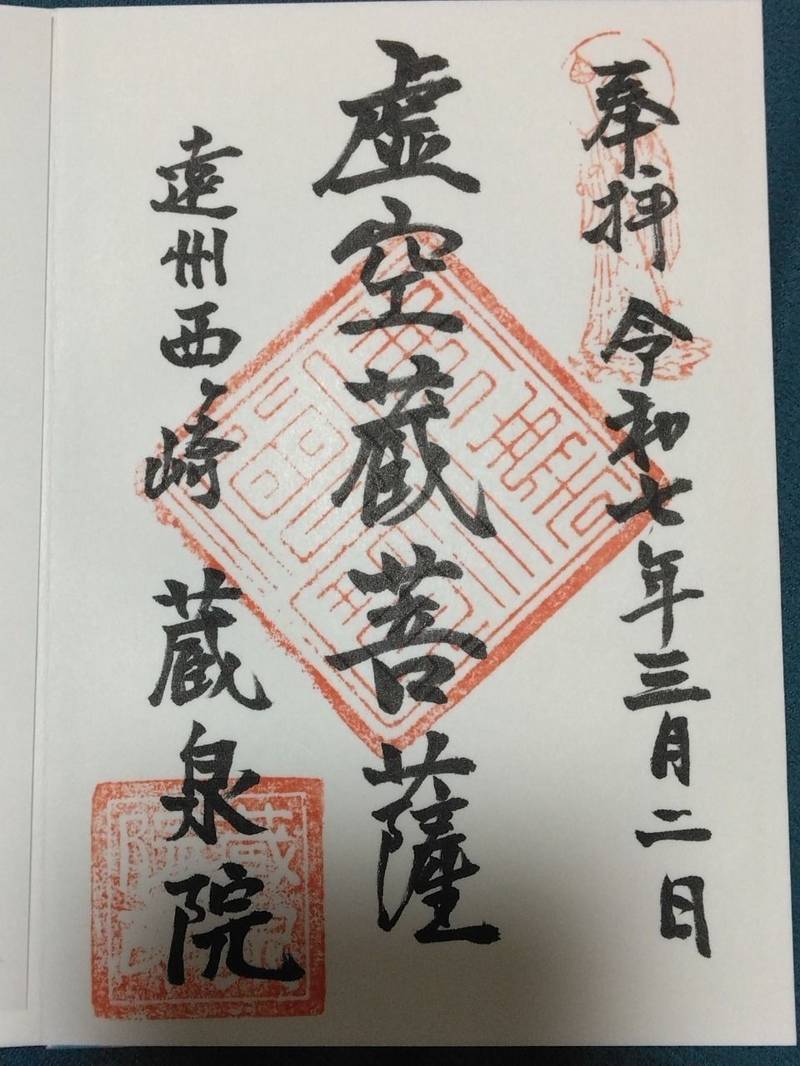 奉拝 令和七年三月二日
虚空蔵菩薩
遠州西ヶ崎 蔵泉院